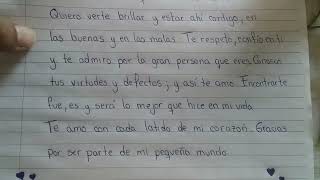 Quiero verte brillar y estar ahí contigo, en
las buenas y en las malas. Te respeto, confío en ti
y te admiro por la gran persona que eres. Conozco
tus virtudes y defectos; y así te amo. Encontrarte
fue, es y será lo mejor que hice en mi vida.
Te amo con cada latido de mi corazón. Gracias
por ser parte de mi pequeño mundo.